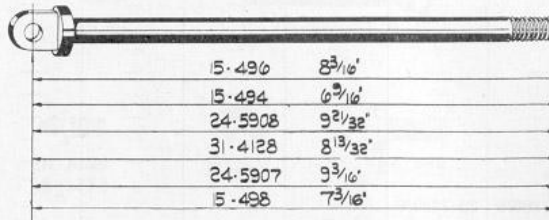 15·496 8 3/16"
15·494 6 9/16"
24·5908 9 21/32"
31·4128 8 13/32"
24·5907 9 3/16"
15·498 7 3/16"